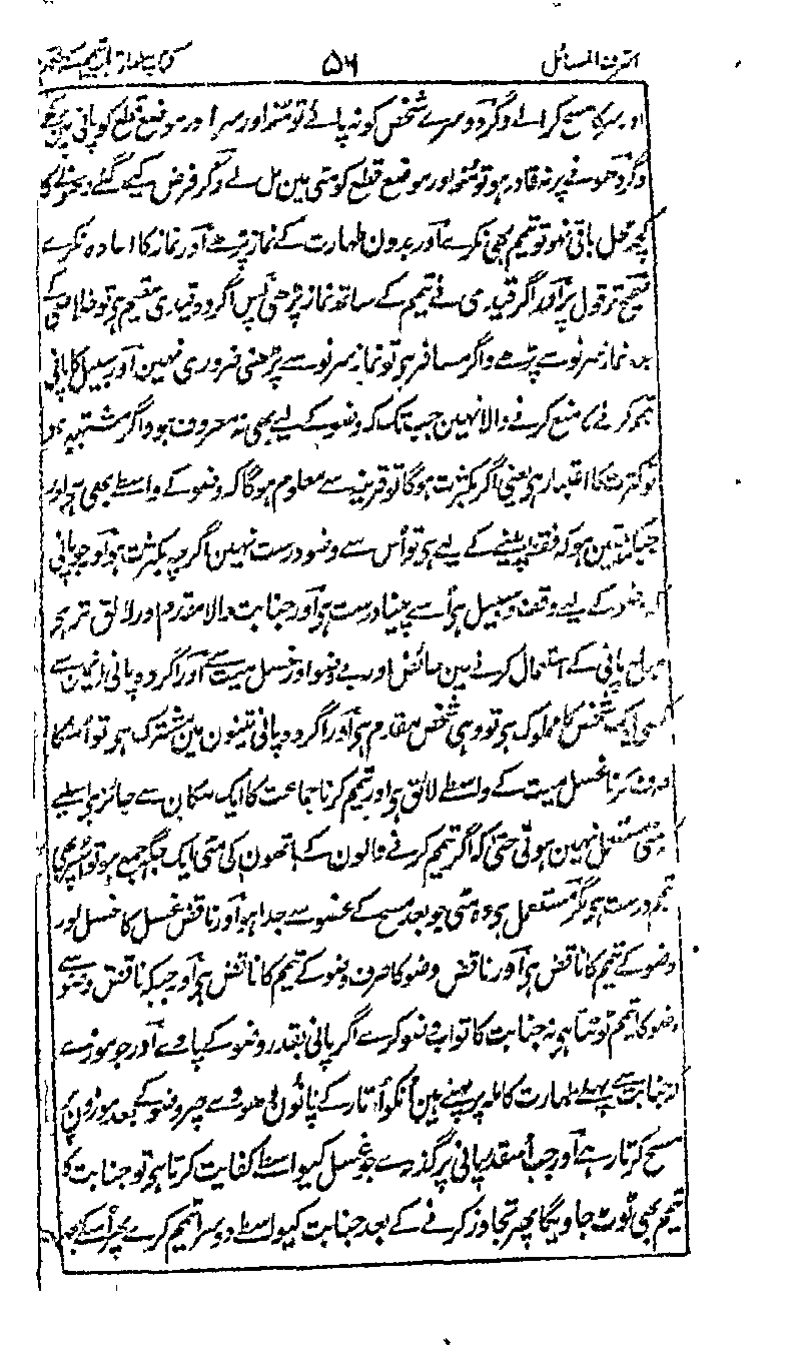 اشرف المسائل ۵۶
اور سر کا مسح کرالے وگر دوسرے شخص کو نہ پائے تو منھ اور سر اور موضع قطع کو پانی مین رکھے
وگر دھونے پر نہ قادر ہو تو منھ اور موضع قطع کو مٹی مین مل لے وگر فرض کیے گئے دھونے کا
کچھ محل باقی نہو تو تیمم بھی نکرے اور بدون طہارت کے نماز پڑھے اور نماز کا اعادہ نکرے
صحیح تر قول پر اور اگر قیدی نے تیمم کے ساتھ نماز پڑھی پس اگر وہ قیدی مقیم ہو تو خلاصی کے
بعد نماز سر نو سے پڑھے واگر مسافر ہو تو نماز سر نو سے پڑھنی ضروری نہین اور سبیل کا پانی
تیمم کرنے کا منع کرنے والا نہین جب تک کہ وضو کے لیے بھی نہ معروف ہو واگر مشتبہ ہو
تو کثرت کا اعتبار ہی یعنی اگر بکثرت ہوگا تو قرینہ سے معلوم ہوگا کہ وضو کے واسطے بھی ہی اور
جہان یقین ہو کہ فقط پینے کے لیے ہو تو اُس سے وضو درست نہین اگرچہ بکثرت ہو اور جو پانی
کہ وضو کے لیے وقف و سبیل ہو اُسے پینا درست ہی اور جنابت والا مقدم اور لائق تر ہی
مباح پانی کے استعمال کرنے مین حائض اور بے وضو اور غسل میت سے اور اگر وہ پانی انمین سے
کسی ایک شخص کا مملوک ہو تو وہی شخص مقدم ہی اور اگر وہ پانی تینون مین مشترک ہو تو اُسکا
صرف کرنا غسل میت کے واسطے لائق ہی اور تیمم کرنا جماعت کا ایک مکان سے جائز ہی اسلیے
مٹی مستعمل نہین ہوتی حتی کہ اگر تیمم کرنے والون کے ہاتھون کی مٹی ایک جگہ جمع ہو تو اُسپر بھی
تیمم درست ہی مگر مستعمل ہی وہ مٹی جو بعد مسح کے عضو سے جدا ہو اور ناقض غسل کا غسل اور
وضو کے تیمم کا ناقض ہی اور ناقض وضو کا صرف وضو کے تیمم کا ناقض ہی اور جبکہ ناقض وضو سے
وضو کا تیمم ٹوٹتا ہو نہ جنابت کا تو اب وضو کرے اگر پانی بقدر وضو کے پاوے اور جو موزے
جنابت سے پہلے طہارت کاملہ پر پہنے ہین اُنکو اُتار کے پانون دھووے پھر وضو کے بعد موزون پر
مسح کرتا رہے اور جب اُسقدر پانی پر گذرے جو غسل کیواسطے کفایت کرتا ہو تو جنابت کا
تیمم بھی ٹوٹ جاویگا پھر تجاوز کرنے کے بعد جنابت کیواسطے دوسرا تیمم کرے پھر اُسکے بعد